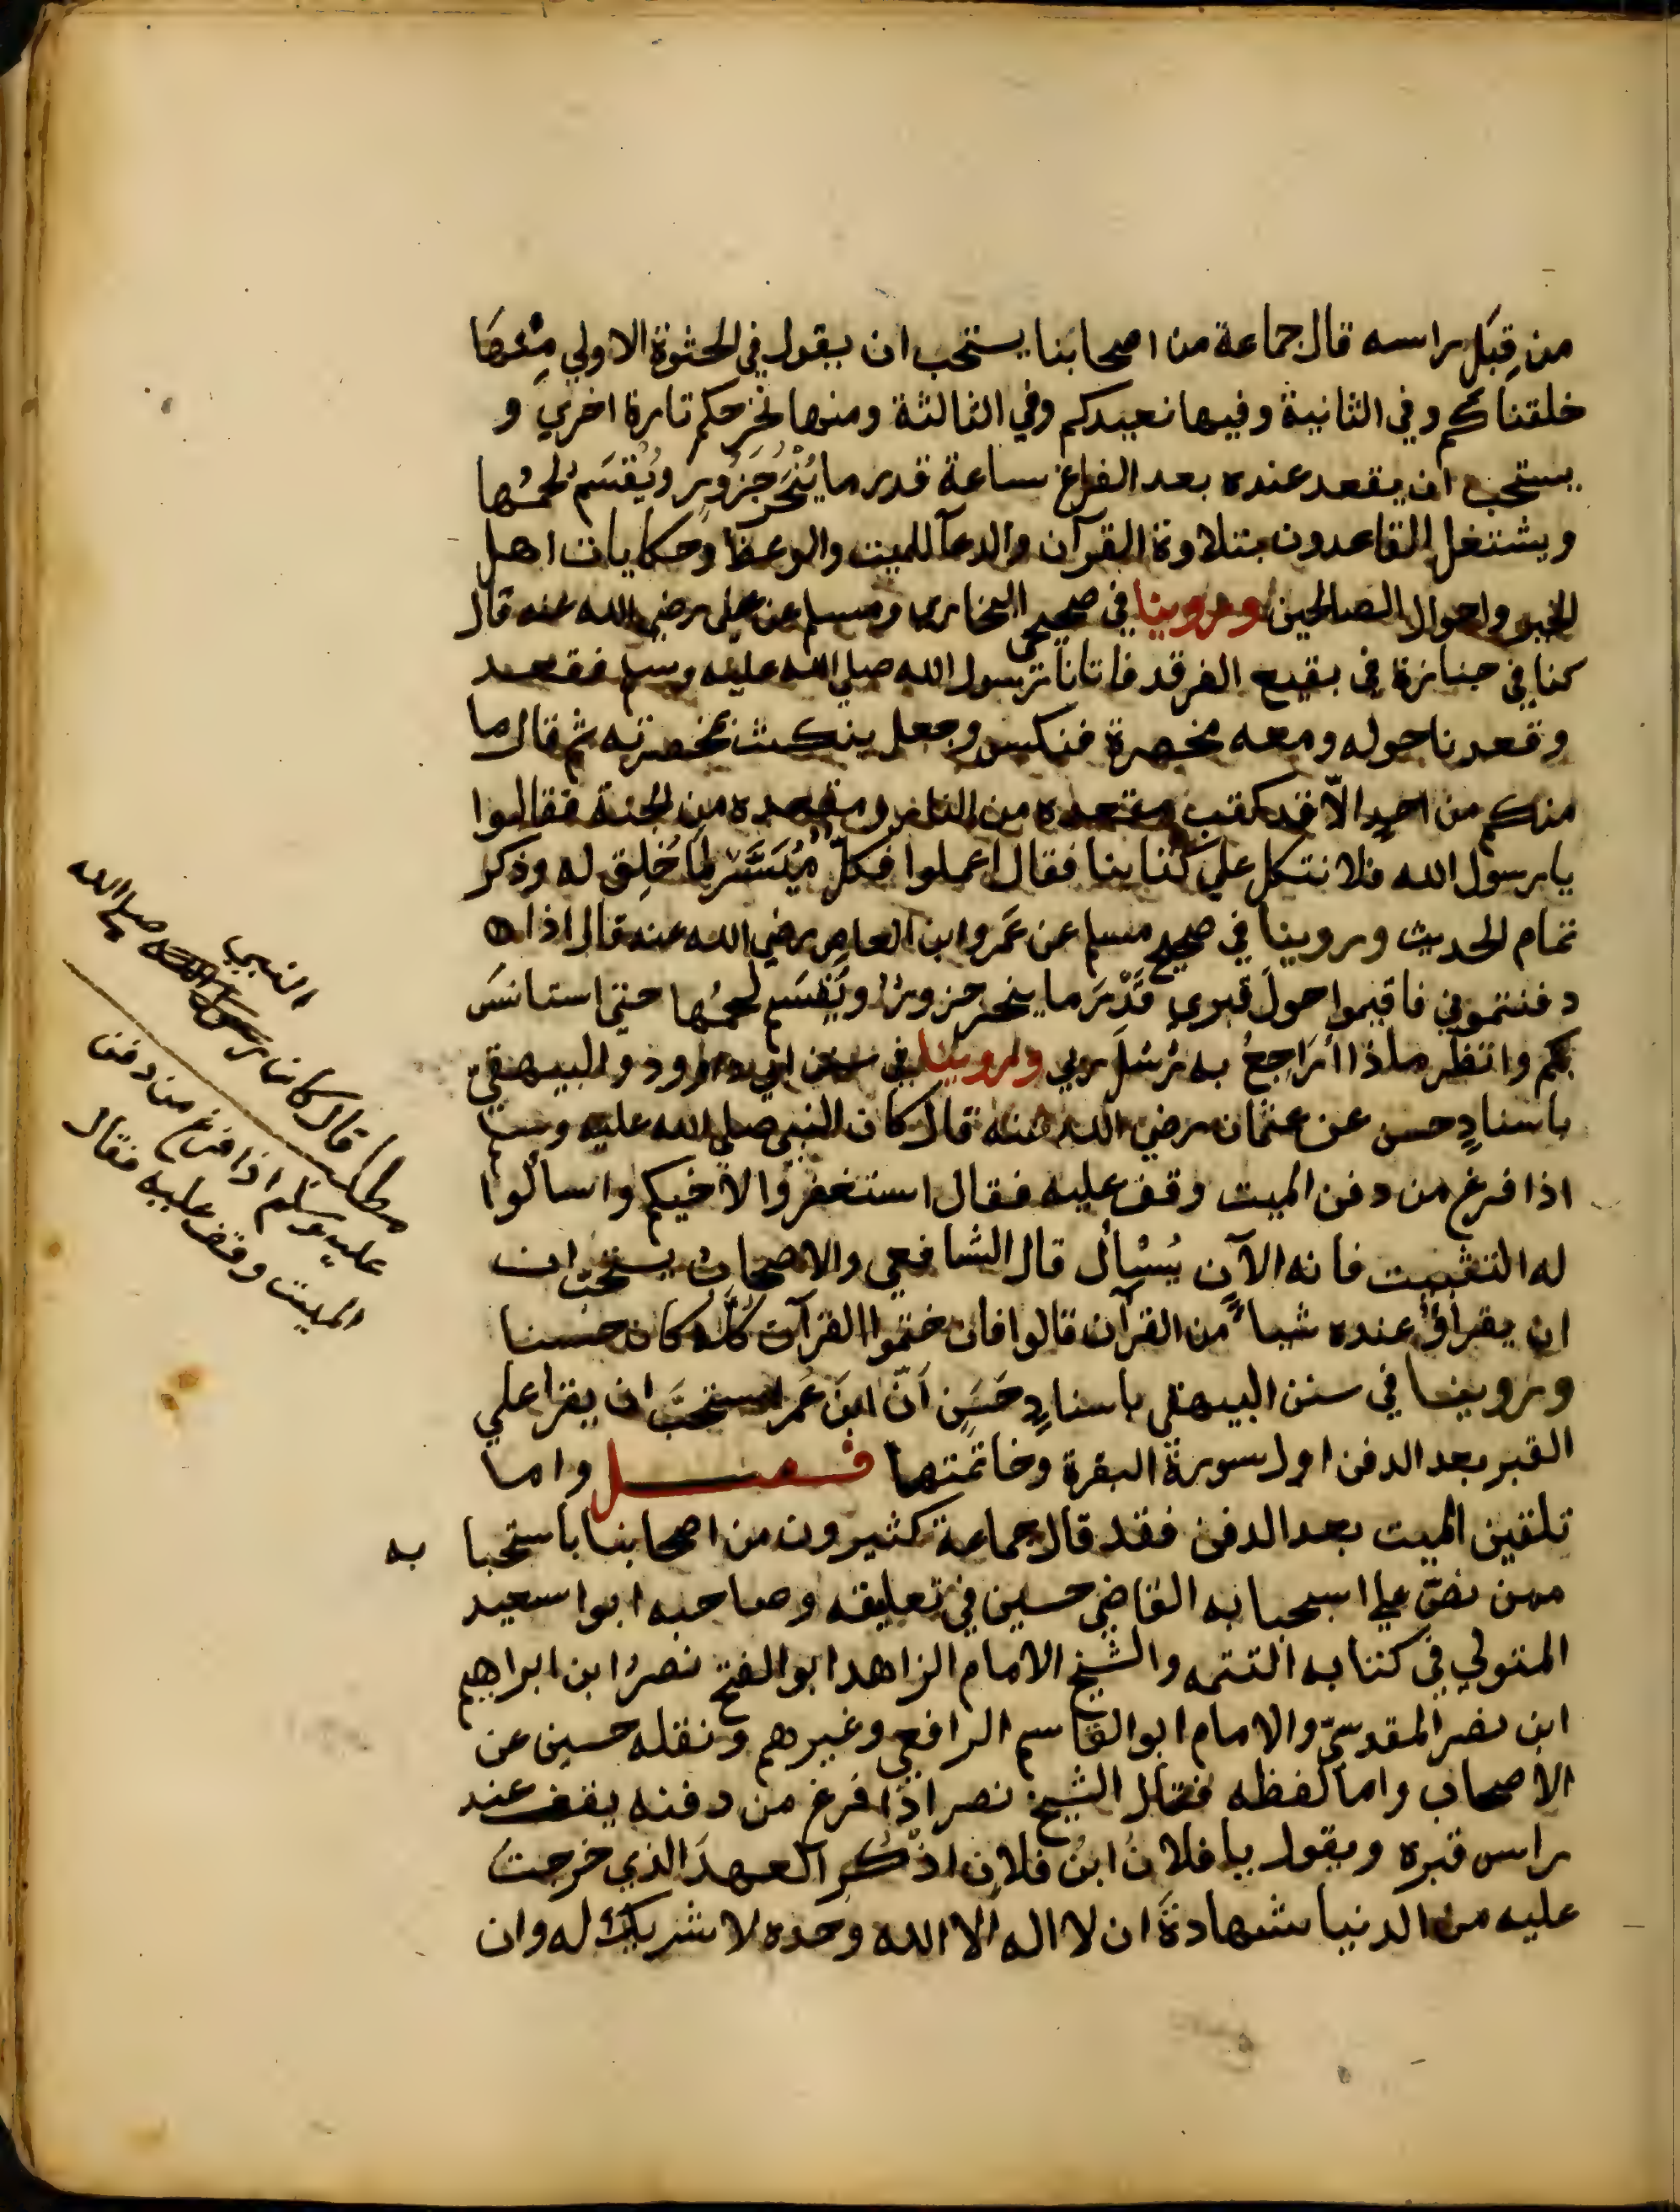 من قِبَل راسه قال جماعة من اصحابنا يستحب ان يقول في الحثوة الاولي مِنْهَا
خلقناكم وفي الثانية وفيها نعيدكم وفي الثالثة ومنها نخرجكم تارة اخري و
يستحب ان يقعد عنده بعد الفراغ ساعة قدر ما يُنْحَر جَزُور ويُقسَم لحمُها
ويشتغل القاعدون بتلاوة القرآن والدعآ للميت والوعظ وحكايات اهل
الخير واحوال الصالحين وروينا في صحيحي البخاري ومسلم عن علي رضي الله عنه قال
كنا في جنازة في بقيع الغرقد فاتانا رسول الله صلي الله عليه وسلم فقعد
وقعدنا حوله ومعه مخصرة فنكس وجعل ينكت بمخصرته ثم قال ما
منكم من احدٍ الّا قد كتب مقعده من النار ومقعده من الجنة فقالوا
يا رسول الله فلا نتكل علي كتابنا فقال اعملوا فكلٌ مُيَسَّر لِمَا خُلِق له وذكر
تمام الحديث وروينا في صحيح مسلم عن عَمرو ابن العاص رضي الله عنه قال اذا
دفنتموني فاقيموا حول قبري قَدْرَ ما ينحر جزورٌ ويُقسَم لحمُها حتي استانسَ
بكم وانظر ماذا أُرَاجعُ به رُسُلَ ربي وروينا في سنن ابي داوود والبيهقيّ
باسنادٍ حسن عن عثمان رضي الله عنه قال كان النبي صلي الله عليه وسلم
اذا فرغ من دفن الميت وقف عليه فقال استغفروا لاخيكم واسالُوا
له التثبيت فانه الآن يُسْأل قال الشافعي والاصحابُ يستحبّ ان
ان يقراؤُ عنده شياءً من القرآن قالوا فان ختموا القرآن كلَّه كان حسنا
وروينا في سنن البيهقي باسنادٍ حَسَنٍ اَنّ ابنَ عُمر استحبَّ ان يقرا علي
القبر بعد الدفن اول سورة البقرة وخاتمتها فصل واما
تلقين الميت بعد الدفن فقد قال جماعة كثيرون من اصحابنا باستحبا به
ممن نصّ علي استحبابه القاضي حسين في تعليقه وصاحبه ابوا سعيد
المتولي في كتابه التتمه والشيخ الامام الزاهد ابو الفتح نصرُ ابن ابراهيم
ابن نصر المقدسيّ والامام ابو القاسم الرافعي وغيرهم ونقله حسين عن
الاصحاب واما لفظه فقال الشيخ نصر اذا فرغ من دفنه يقف عند
راس قبره ويقول يا فلانُ ابنُ فلانٍ اذكُرِ العهدَ الذي خرجتَ
عليه من الدنيا شهادةَ ان لا اله الا الله وحده لا شريك له وان
النبي
مطلب قال كان رسول الله صلي الله
عليه وسلم اذا فرغ من دفن
الميت وقف عليه فقال